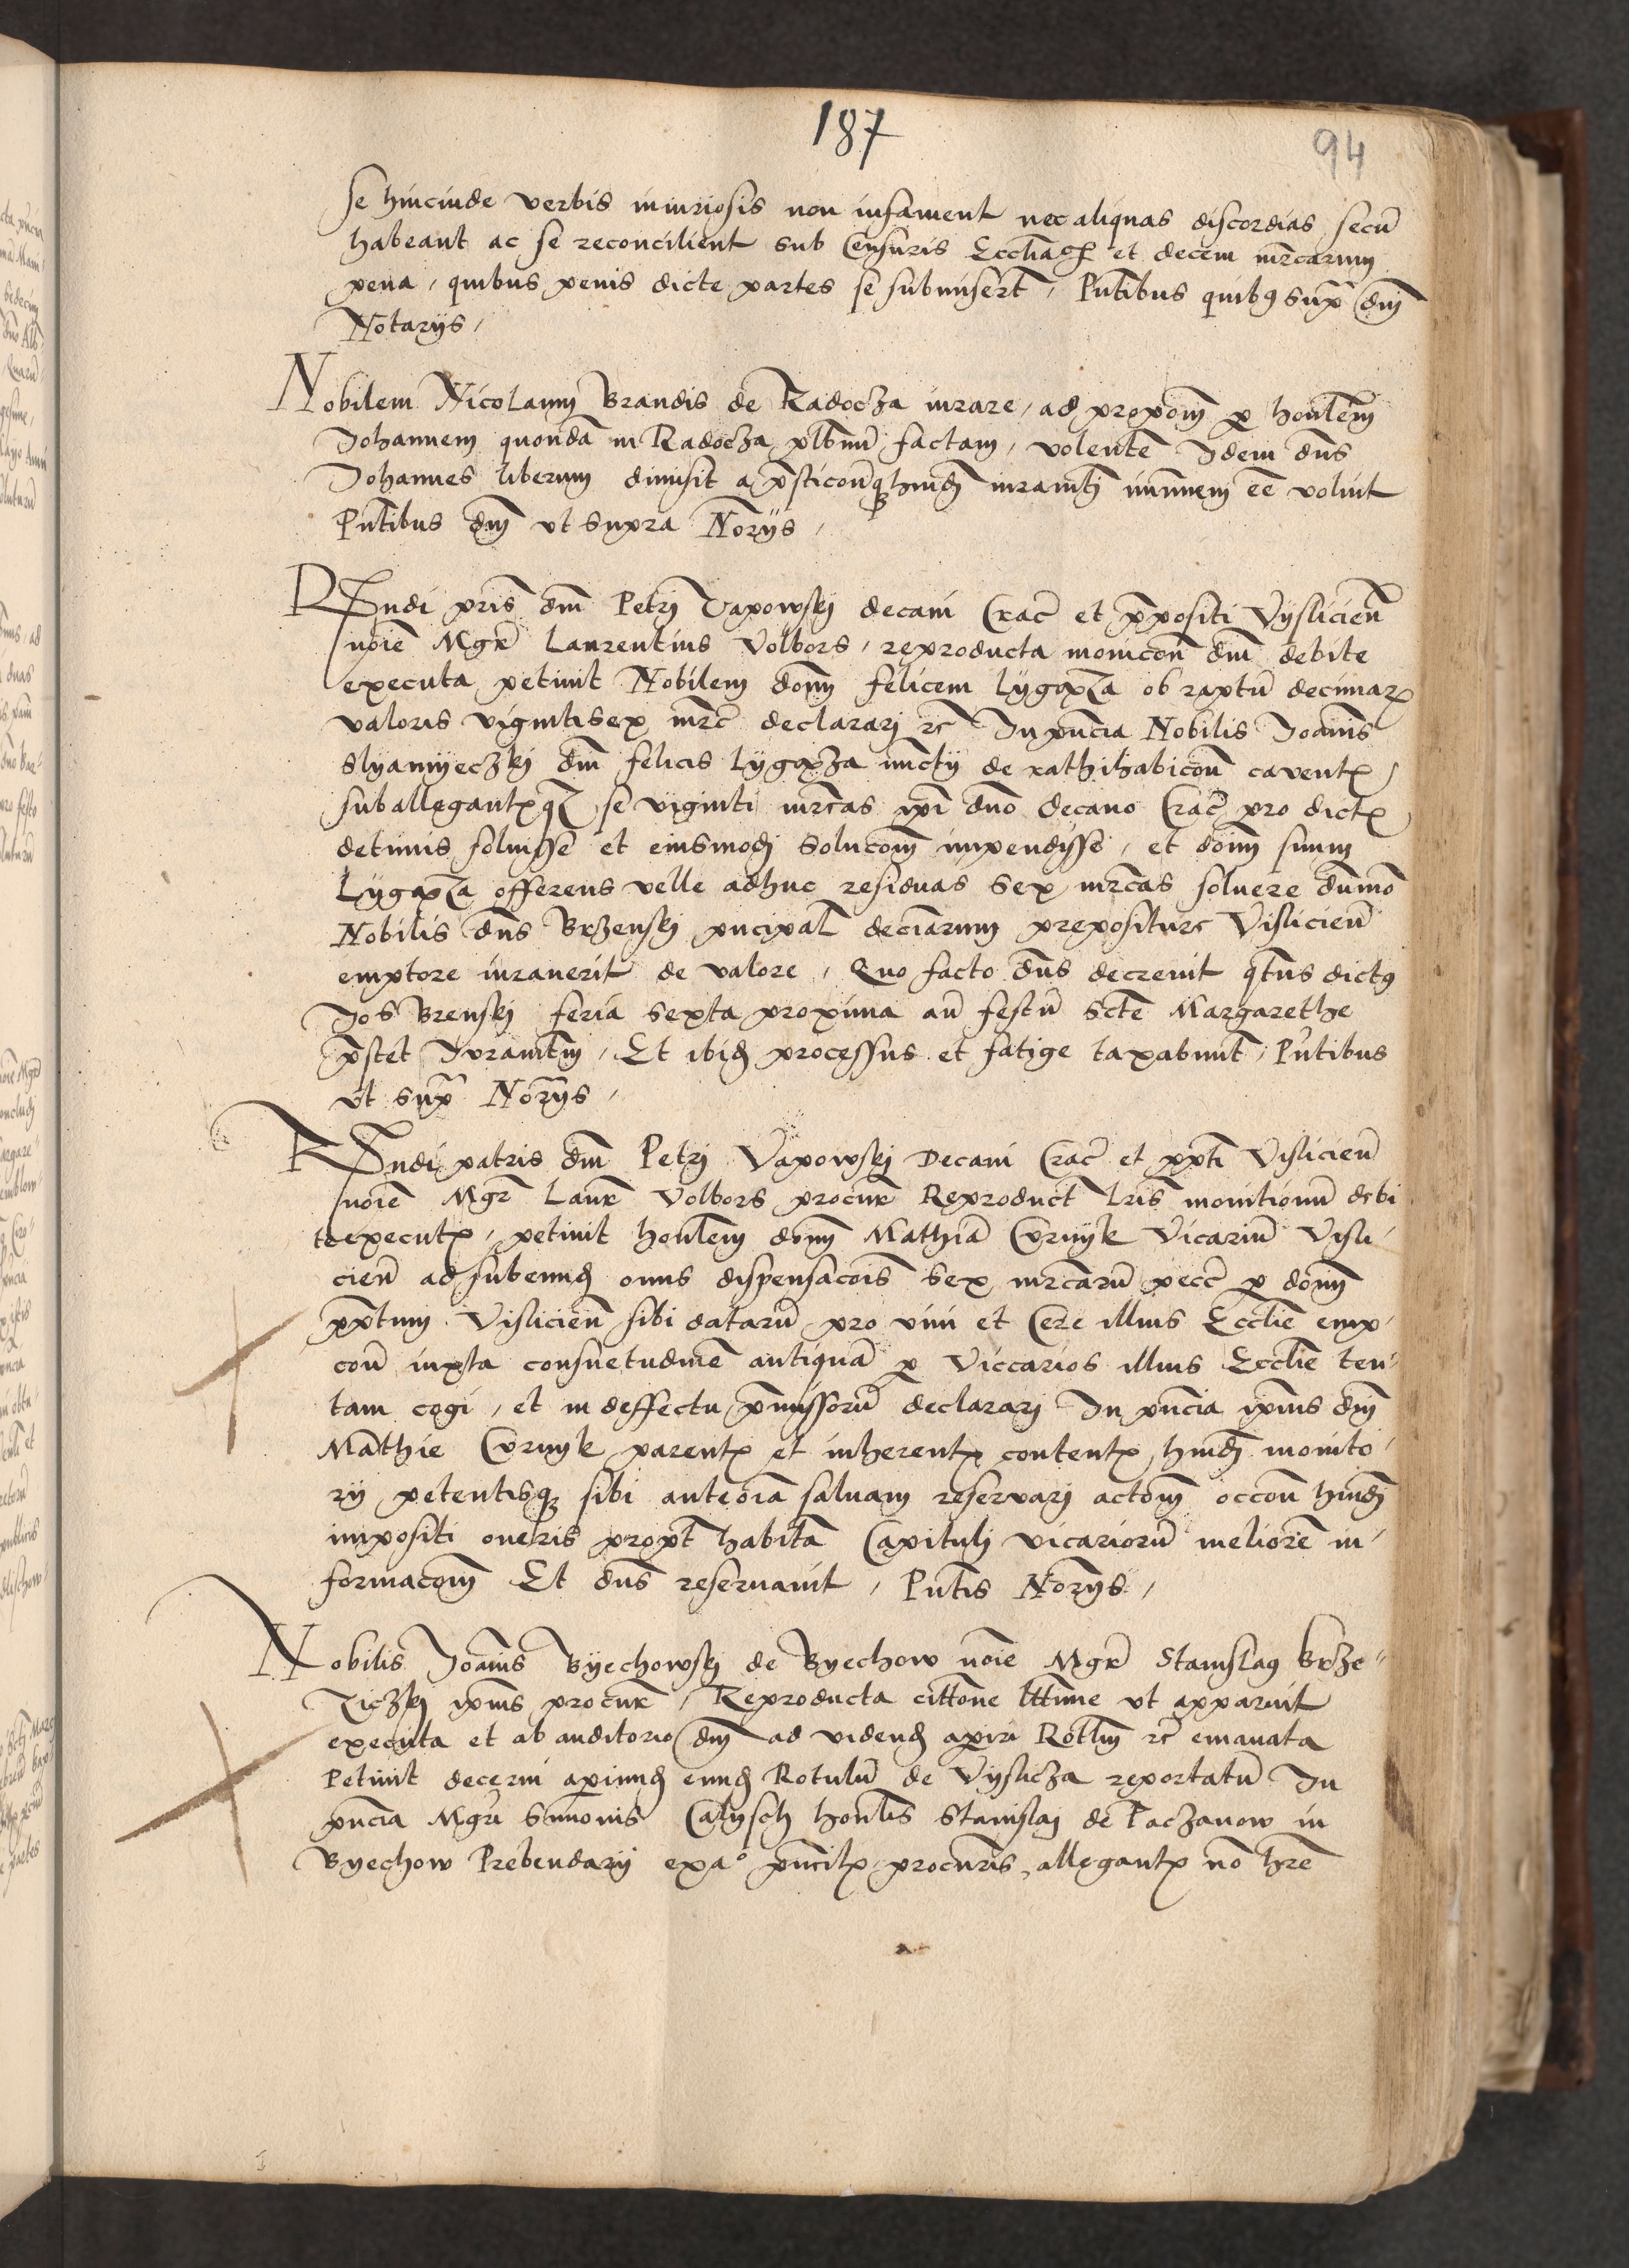 187
94
se hincinde verbis iniuriosis non infament nec aliquas discordias secū
habeant ac se reconcilient sub Censuris Eccłiacꝭ et decem mrcarum
pena, quibus penis dicte partes se submisert, Pn̄tibus quibꝯ supͣ dn̄j
Notarijs,
Nobilem Nicolaum Brandis de Radocza iurare, ad propoōm ꝑ honlem
Johannem quondā in Radocza plbnū factam, volentē Idem dn̄s
Johannes liberum dimisit a p̄sticoūqꝫ hmōj iuramtj immunem eē voluit
Pn̄tibus dn̄j vt supra Nōrijs,
Rn̄di pris dn̄j Petrj Vapowskj decanj Crac̄ et p̄positi Vysliciēn
noīe Mgr̄ Laurentius Volbors, reproducta monicōn dn̄j debite
executa petiuit Nobilem donm̄ felicem Lygąza ob raptū decimarꝝ
valoris vigintisex mrc̄ declararj rc̄ In pn̄cia Nobilis Joannis
Slyamyeczkj dn̄j felicis Lygąza nunctij de rathihabicōn cauentꝭ
suballegantꝭqꝫ se viginti mrcas ipī dn̄o decano Crac̄ pro dictꝭ
detimis soluisse et eiusmodj solucōm impendisse, et donm̄ suum
Lygąza offerens velle adhuc residuas sex mrcas soluere dūmō
Nobilis dn̄s Brzenskj pncipal decīarum prepositure Visliciēn
emptore iurauerit de valore, Quo facto dn̄s decreuit qtn̄s dictꝯ
Jos Brenskj feria sexta proxima an̄ festū Scte Margarethe
p̄stet Juramtm, Et ibidꝫ processus et fatige taxabunt, Pn̄tibus
vt supͣ Nōrijs,
Rn̄di patris dn̄j Petrj Vapowskj Decanj Crac̄ et ppti Visliciēn
noīe Mgr̄ Laur̄ Volbors procur̄ Reproduct lris monitionū debi
te executꝭ, petiuit honlem donm̄ Mathiā Czrnyk Vicariū Visli,
ciēn ad subeundꝫ onus dispensacōis sex mrcarū pecc̄ ꝑ donm̄
pptum Visliciēn sibi datarū pro vini et Cere illius Eccłie emp,
cōn iuxta consuetudinē antiquā ꝑ Viccarios illius Eccłie ten,
tam cogi, et in deffectu p̄missorū declararj In pn̄cia ipīus dn̄j
Mathie Czrnyk parentꝭ et inherentꝭ contentꝭ hmōj monito,
rij petentisqꝫ sibi anteōīa saluam reseruarj actōm occōn hmōj
impositi oneris propt habitā Capitulj vicariorū meliorē in,
formacōm Et dn̄s reseruauit, Pn̄tis Nōrijs,
Nobilis Joannis Byechowskj de Byechow noīe Mgr̄ Stanislaꝯ Krze,
ziczkj ipīus procur̄, Reproducta cittōne lttime vt apparuit
executa et ab auditorio dn̄j ad videndꝫ aperirj Rotlm rc̄ emanata
Petiuit decerni aperiundꝫ eundꝫ Rotulū de Vyslicza reportatū In
pn̄cia Mgrī Simonis Calysch honlis Stanislaj de Paczanow in
Byechow Prebendarij exa° pn̄cilꝭ procuris, allegantꝭ no hr̄e